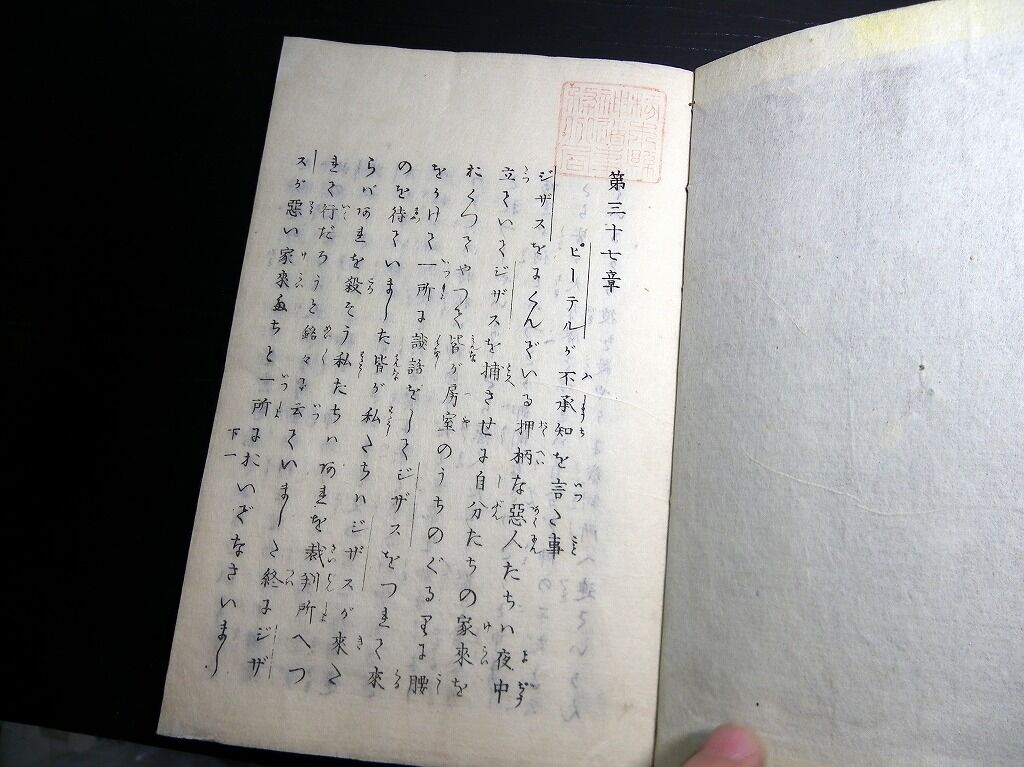 第三十七章
ピーテルが不承知を言た事
ジザスをにくんでいる押柄な惡人たちハ夜中
立ていてジザスを捕させに自分たちの家來を
おくつてやつて皆が房室のうちのぐるりに腰
をかけて一所に談話をしてジザスをつれて來
のを待ていました皆が私たちハジザスが來た
らバあれを殺そう私たちハあれを裁判所へつ
れて行だろうと銘々に云ていました終にジザ
スが惡い家來たちと一所においでなさいまし
下一